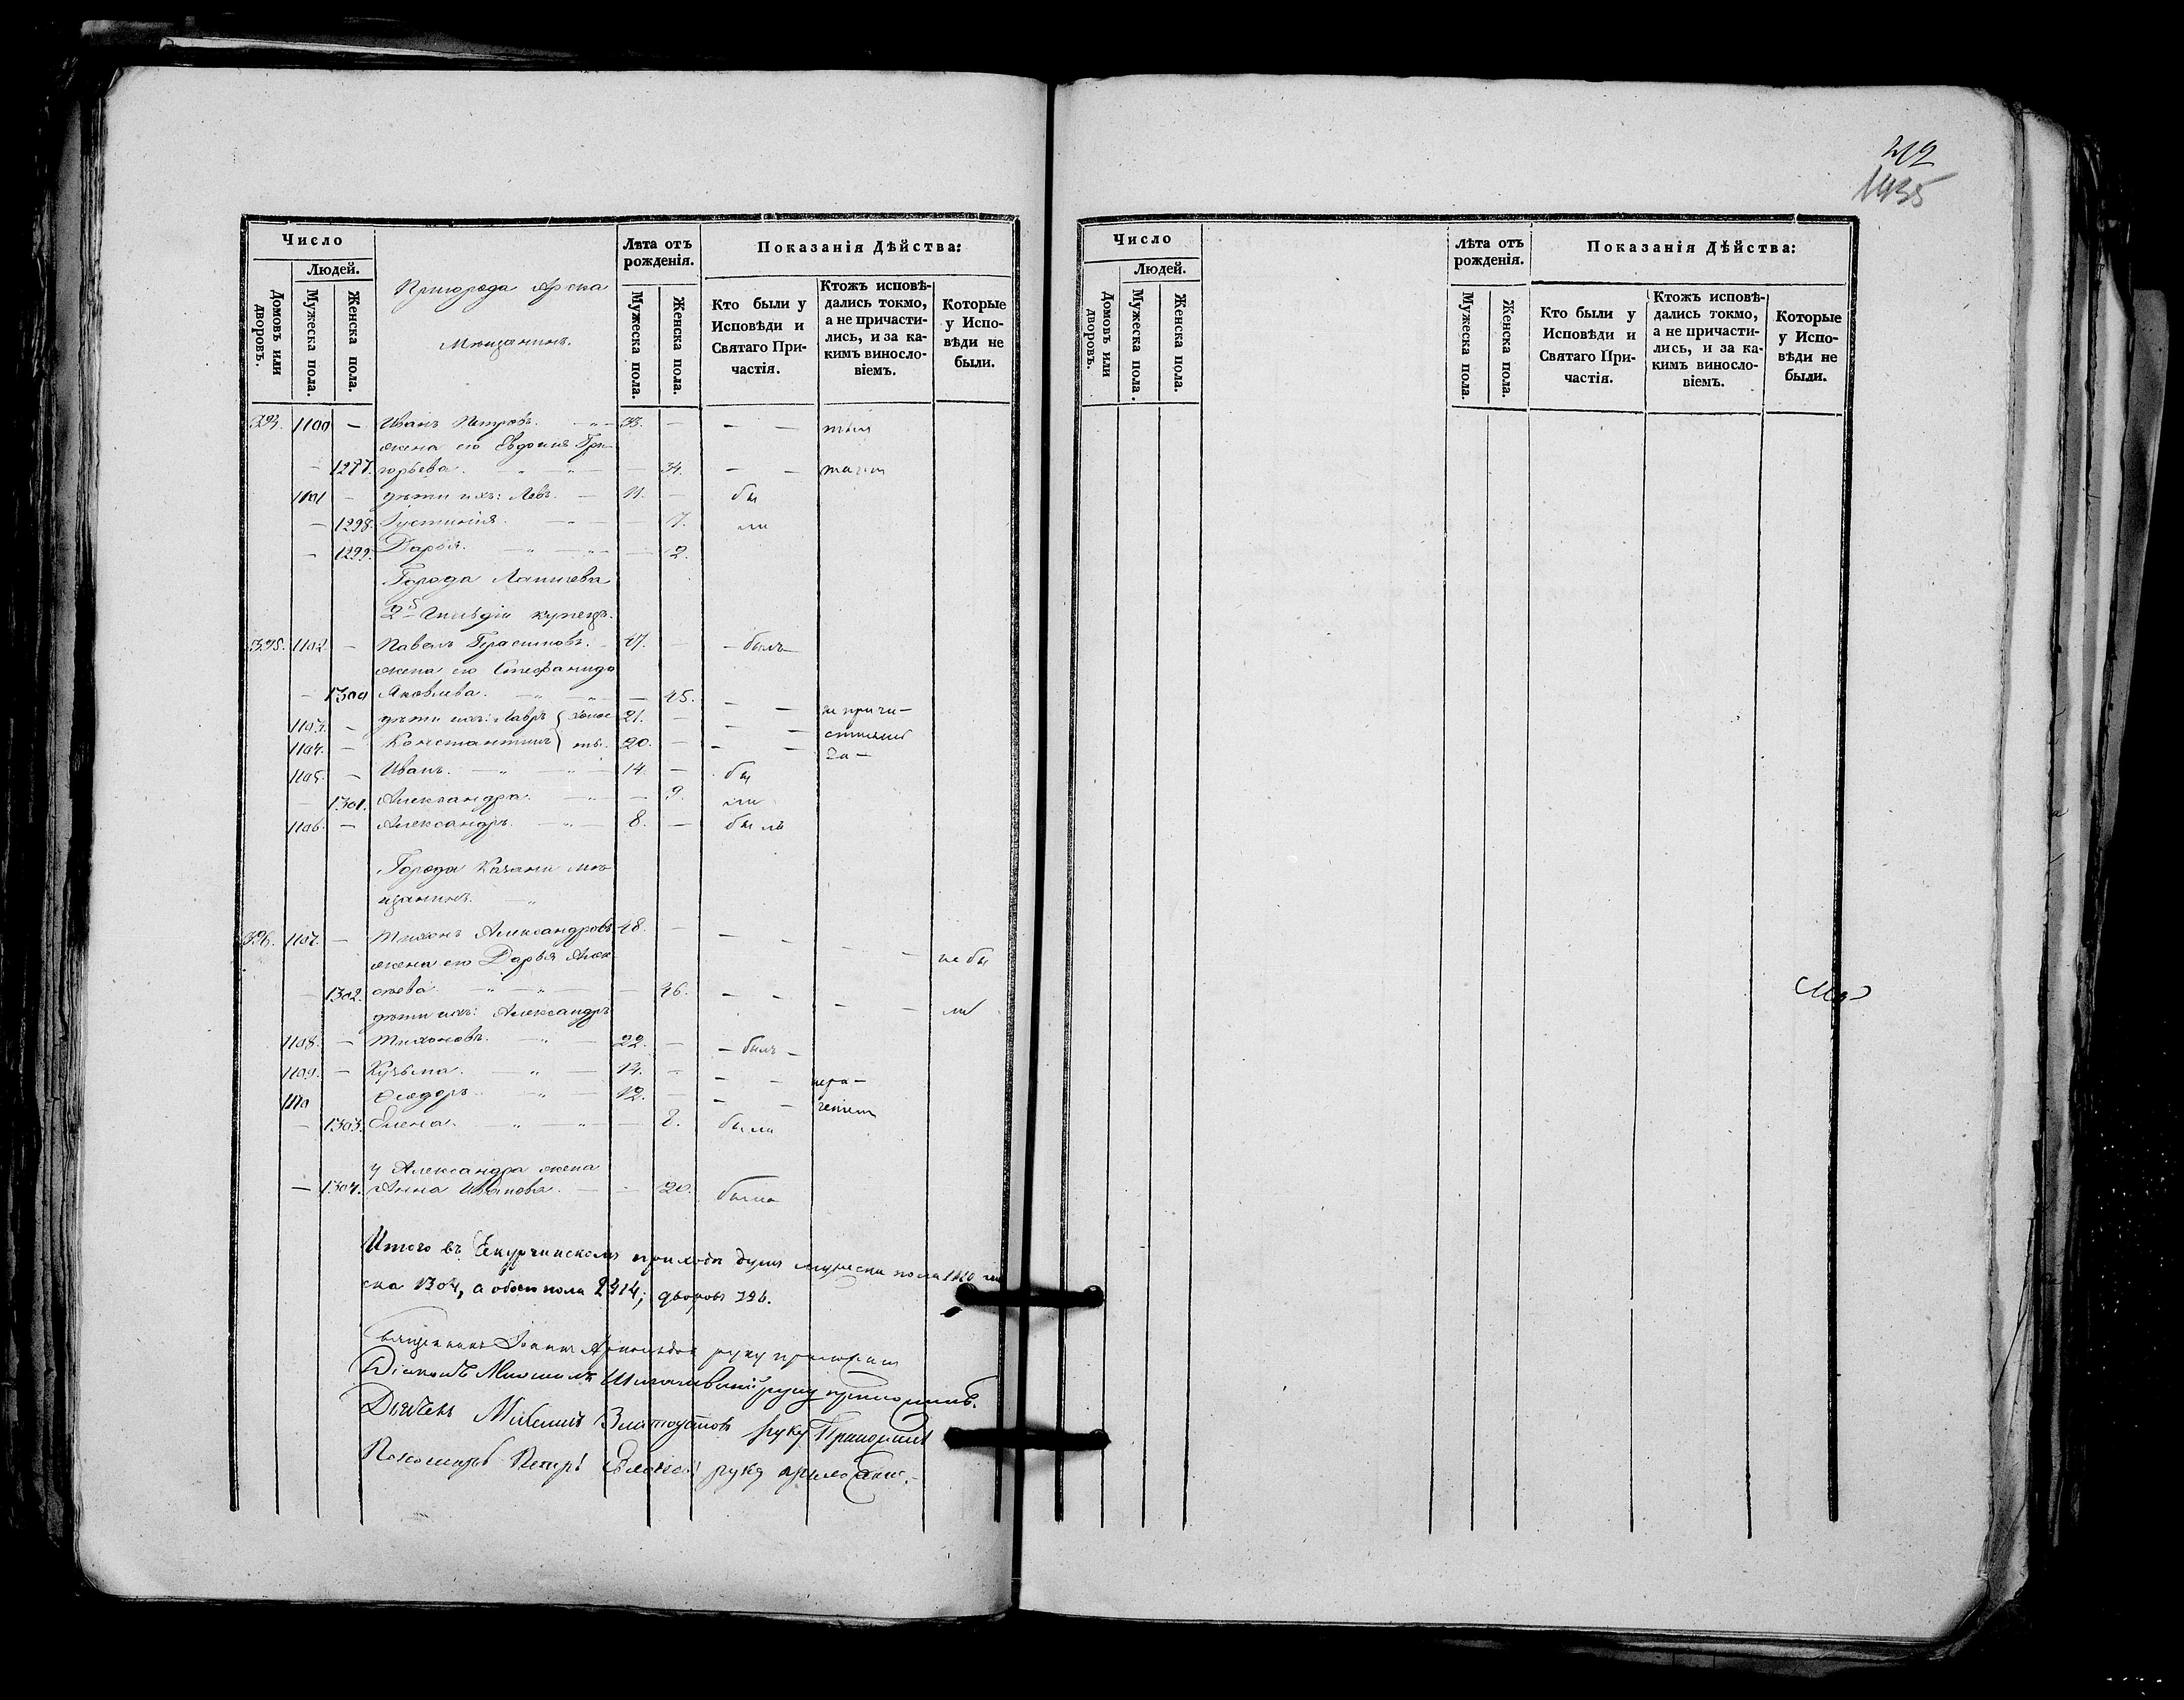 412
1435
Число
Людей.
Домовъ или дворовъ.
Мужеска пола.
Женска пола.
Пригорода Арска
Мѣщанинъ.
Лѣта отъ рожденія.
Мужеска пола.
Женска пола.
Показанія Дѣйства:
Кто были у Исповѣди и Святаго Причастія.
Ктожъ исповѣдались токмо, а не причастились, и за какимъ винословіемъ.
Которые у Исповѣди не были.
1100 — Иванъ Петровъ. — 33. —
жена его Евдокія Гри-
— 1297. горьева. — 34.
1101 — дѣти ихъ: Левъ. — 11. — бы
— 1298. Іустинія. — 7. ли
— 1299. Дарья. — 2.
Города Лаишева
2й Гильдіи купецъ.
395. 1102. — Павелъ Герасимовъ. — 47. — былъ
жена его Стефанида
— 1300 Яковлева. — 45.
1103. — дѣти ихъ: Лавръ 21. —
1104. — Константинъ 20. —
1105. — Иванъ. — 14. — бы
— 1301. Александра. — 9. ли
1106. — Александръ. — 8. — былъ
Города Казани мѣ-
щанинъ.
396. 1107. — Тихонъ Александровъ 48. — не бы
жена его Дарья Алек-
— 1302. сѣева — 46. ли
дѣти ихъ: Александръ
1108. — Тихоновъ. — 22. — былъ
1109. — Кузьма. — 14. —
1110 Ѳеодоръ. — 12. —
— 1303. Елена. — 8. была
у Александра жена
— 1304. Анна Иванова. — 20. была
Итого въ приходѣ душъ мужеска пола 1110 жен
ска 1304, а обоего пола 2414; дворовъ 396.
Священникъ Іоаннъ руку приложилъ
Діаконъ руку приложилъ.
Дьячекъ Златоустовъ руку Приложилъ
Пономарь Петръ руку приложилъ.
Число
Людей.
Домовъ или дворовъ.
Мужеска пола.
Женска пола.
Лѣта отъ рожденія.
Мужеска пола.
Женска пола.
Показанія Дѣйства:
Кто были у Исповѣди и Святаго Причастія.
Ктожъ исповѣдались токмо, а не причастились, и за какимъ винословіемъ.
Которые у Исповѣди не были.